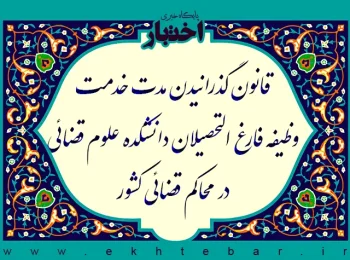 پایگاه خبری
اختبار
قانون گذرانیدن مدت خدمت
وظیفه فارغ التحصیلان دانشکده علوم قضائی
در محاکم قضائی کشور
www.ekhtebar.ir